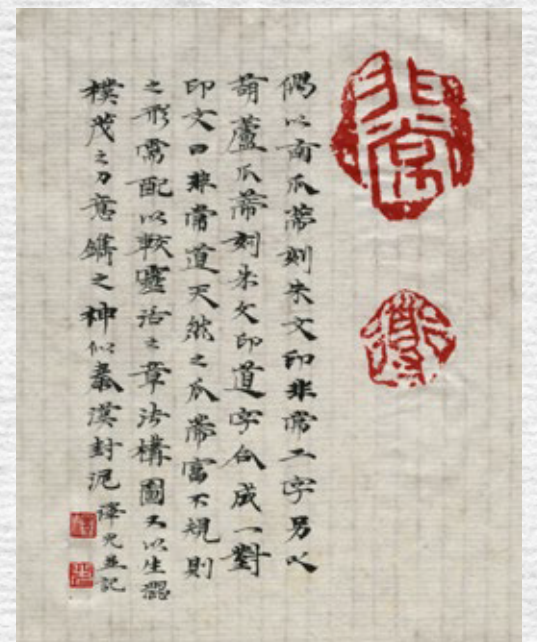 非常
道
偶以南瓜蒂刻朱文印非常二字另以
葫蘆瓜蒂刻朱文印道字合成一對
印文曰非常道天然之瓜蒂富不規則
之形需配以較靈活之章法構圖又以生澀
樸茂之刀意鐫之神似秦漢封泥
並記